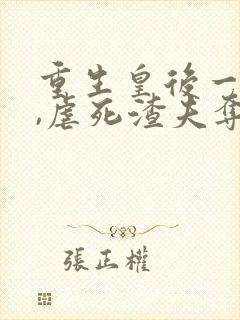 重生皇後一
,虐死渣夫奪
張正權